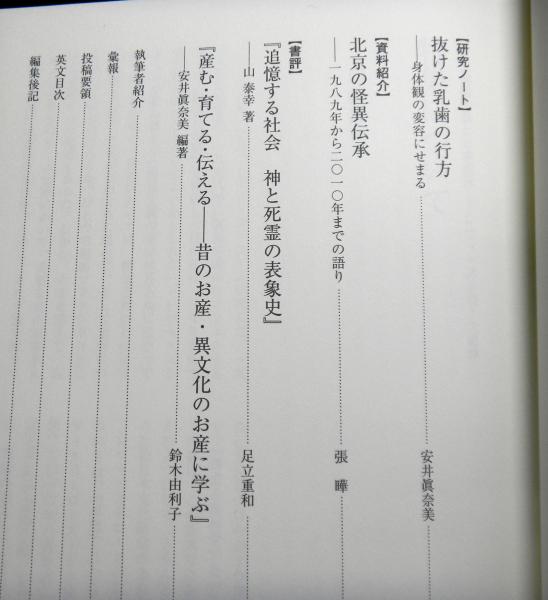 【研究ノート】
抜けた乳歯の行方
――身体観の変容にせまる……安井眞奈美
【資料紹介】
北京の怪異伝承
――一九八九年から二〇一〇年までの語り……張 曄
【書評】
『追憶する社会 神と死霊の表象史』
――山 泰幸 著……足立重和
『産む・育てる・伝える――昔のお産・異文化のお産に学ぶ』
――安井眞奈美 編著……鈴木由利子
執筆者紹介
彙報
投稿要領
英文目次
編集後記